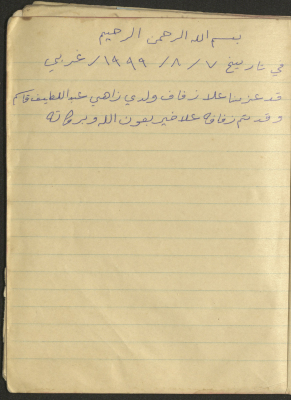 بسم الله الرحمن الرحيم
في تاريخ ٧/ ٨/ ١٩٩٩/ عربي
قد عزمنا علا زفاف ولدي زاهي عبد اللطيف قاسم
وقد تم زفافه علا خير بعون الله وبركاته